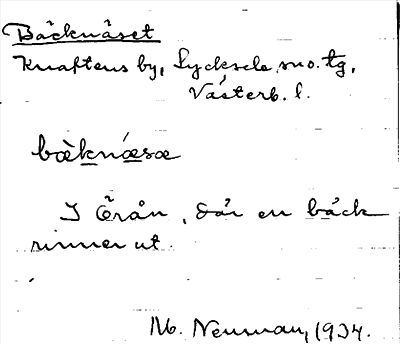 Bäcknäset
Knaftens by, Lycksele sno. tg,
Västerb. l.
bæknæsæ
I Örån, där en bäck
rinner ut.
M. Neuman, 1934.